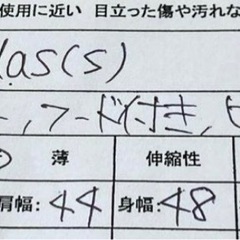 使用に近い 目立った傷や汚れな
las(s)
フード付き,
薄 伸縮性
肩幅: 44 身幅: 48